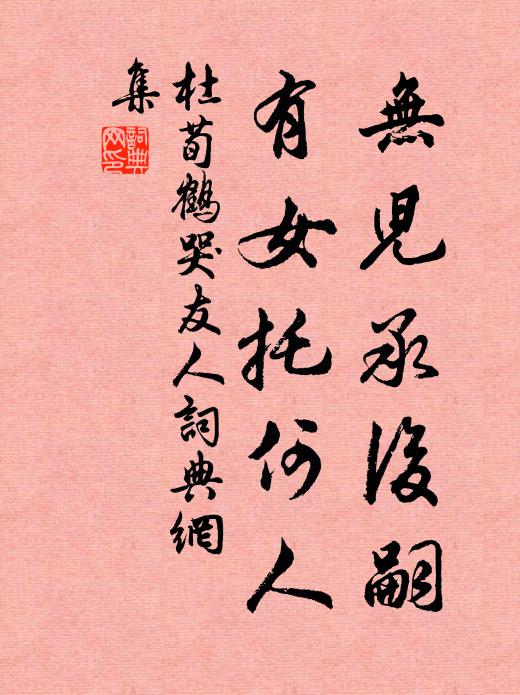 無兒承後嗣
有女托何人
杜荀鶴哭友人詞典網
集
詞典
网印